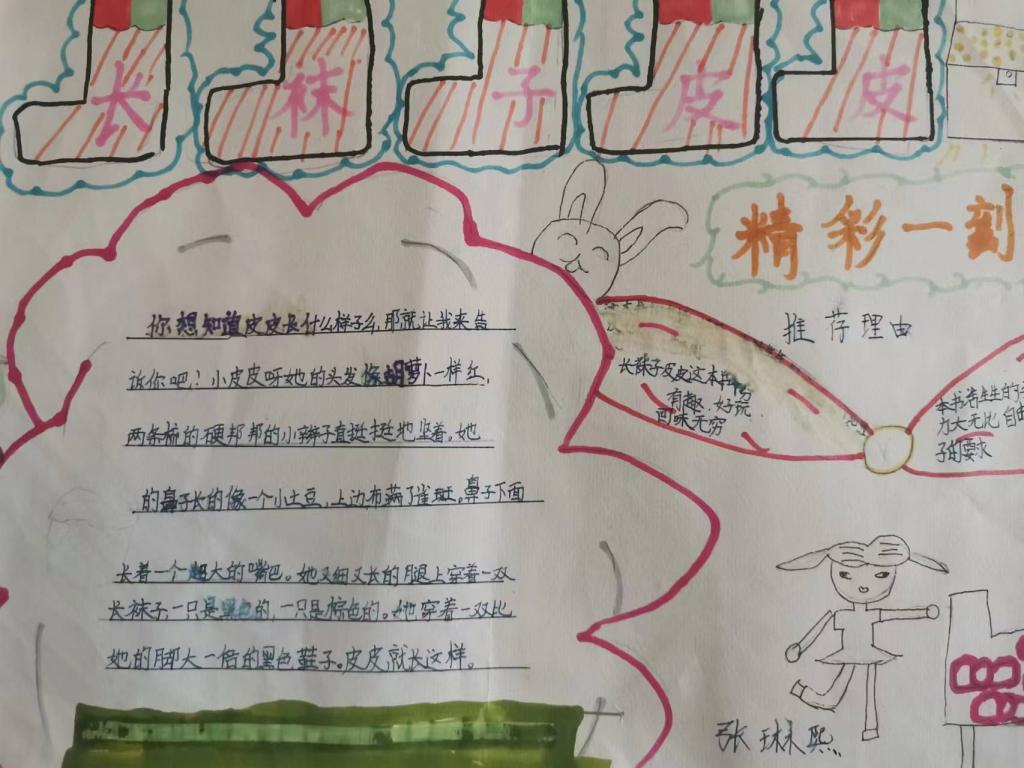 长袜子皮皮
精彩一刻
你想知道皮皮长什么样子么,那就让我来告
诉你吧!小皮皮呀她的头发像胡萝卜一样红,
两条梆的硬邦邦的小辫子直挺挺地竖着。她
的鼻子长的像一个小土豆,上边布满了雀斑。鼻子下面
长着一个超大的嘴巴。她又细又长的腿上穿着一双
长袜子一只是黑色的,一只是棕色的。她穿着一双比
她的脚大一倍的黑色鞋子。皮皮就长这样。
推荐理由
长袜子皮皮这本书
有趣、好玩
回味无穷
本书
力大无比
子的要求
张琳熙